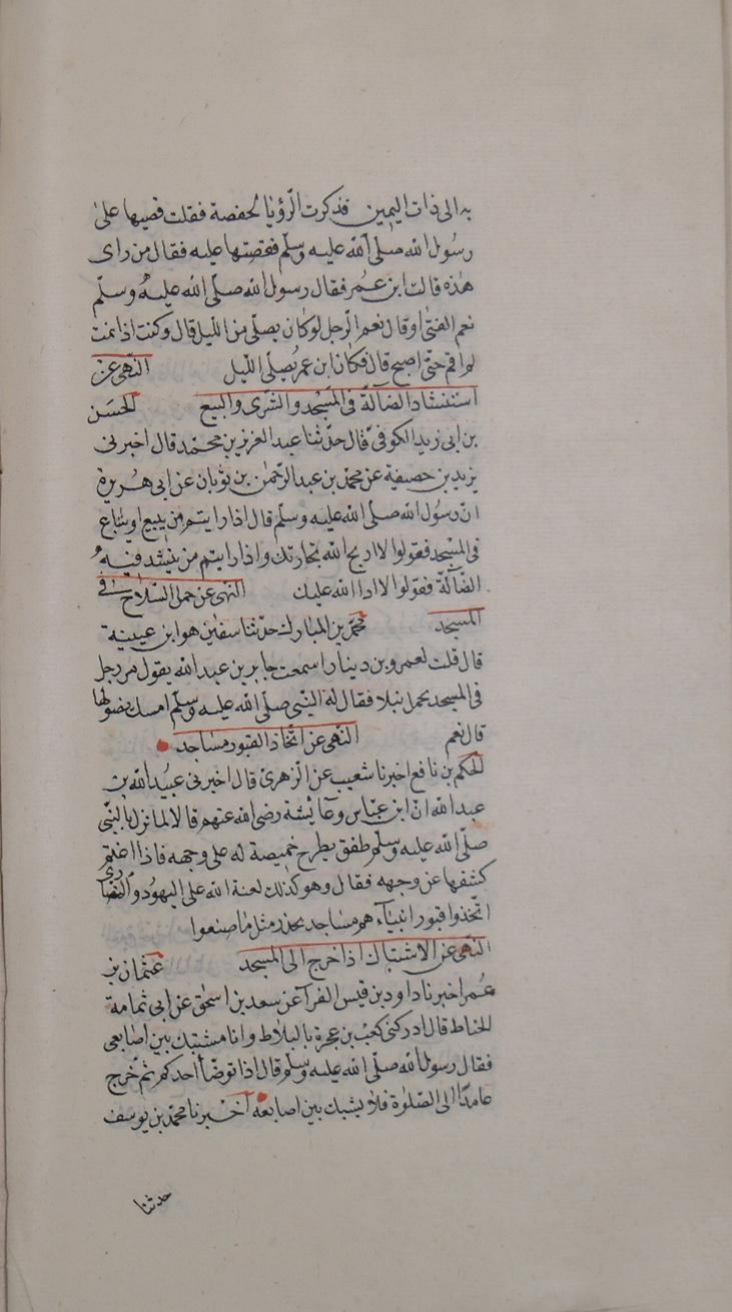 به الى ذات اليمين فذكرت الرؤيا لحفصة فقلت قصيها على
رسول الله صلى الله عليه وسلم فقصتها عليه فقال من راى
هذه قالت ابن عمر فقال رسول الله صلى الله عليه وسلم
نعم الفتى او قال نعم الرجل لو كان يصلى من الليل قال وكنت اذا نمت
لم اقم حتى اصبح قال فكان ابن عمر يصلى الليل النهى عن
استنشاد الضآلة فى المسجد والشرى والبيع الحسن
بن ابى زيد الكوفى قال حدثنا عبد العزيز بن محمد قال اخبرنى
يزيد بن حصيفة عن محمد بن عبد الرحمن بن ثوبان عن ابى هريرة
ان رسول الله صلى الله عليه وسلم قال اذا رايتم من يبيع او يبتاع
فى المسجد فقولوا لا اربح الله تجارتك واذا رايتم من ينشد فيه
الضآلة فقولوا لا ادا الله عليك النهى عن حمل السلاح فى
المسجد محمد بن المبارك حدثنا سفين هو ابن عيينة
قال قلت لعمرو بن دينار اسمعت جابر بن عبد الله يقول مر رجل
فى المسجد يحمل نبلا فقال له النبى صلى الله عليه وسلم امسك بنصولها
قال نعم النهى عن اتخاذ القبور مساجد
الحكم بن نافع اخبرنا شعيب عن الزهرى قال اخبرنى عبيد الله بن
عبد الله ان ابن عباس وعايشة رضى الله عنهم قالا لما نزل بالنبى
صلى الله عليه وسلم طفق يطرح خميصة له على وجهه فاذا اغتم
كشفها عن وجهه فقال وهو كذلك لعنة الله على اليهود والنصارى
اتخذوا قبور انبيآءهم مساجد يحذر مثل ما صنعوا
النهى عن الاشتباك اذا خرج الى المسجد عثمان بن
عمر اخبرنا داود بن قيس الفرآ عن سعد بن اسحق عن ابى ثمامة
الحناط قال ادركنى كعب بن عجرة بالبلاط وانا مشتبك بين اصابعى
فقال رسول الله صلى الله عليه وسلم قال اذا توضأ احدكم ثم خرج
عامدا الى الصلوة فلا يشبك بين اصابعه اخبرنا محمد بن يوسف
حدثنا